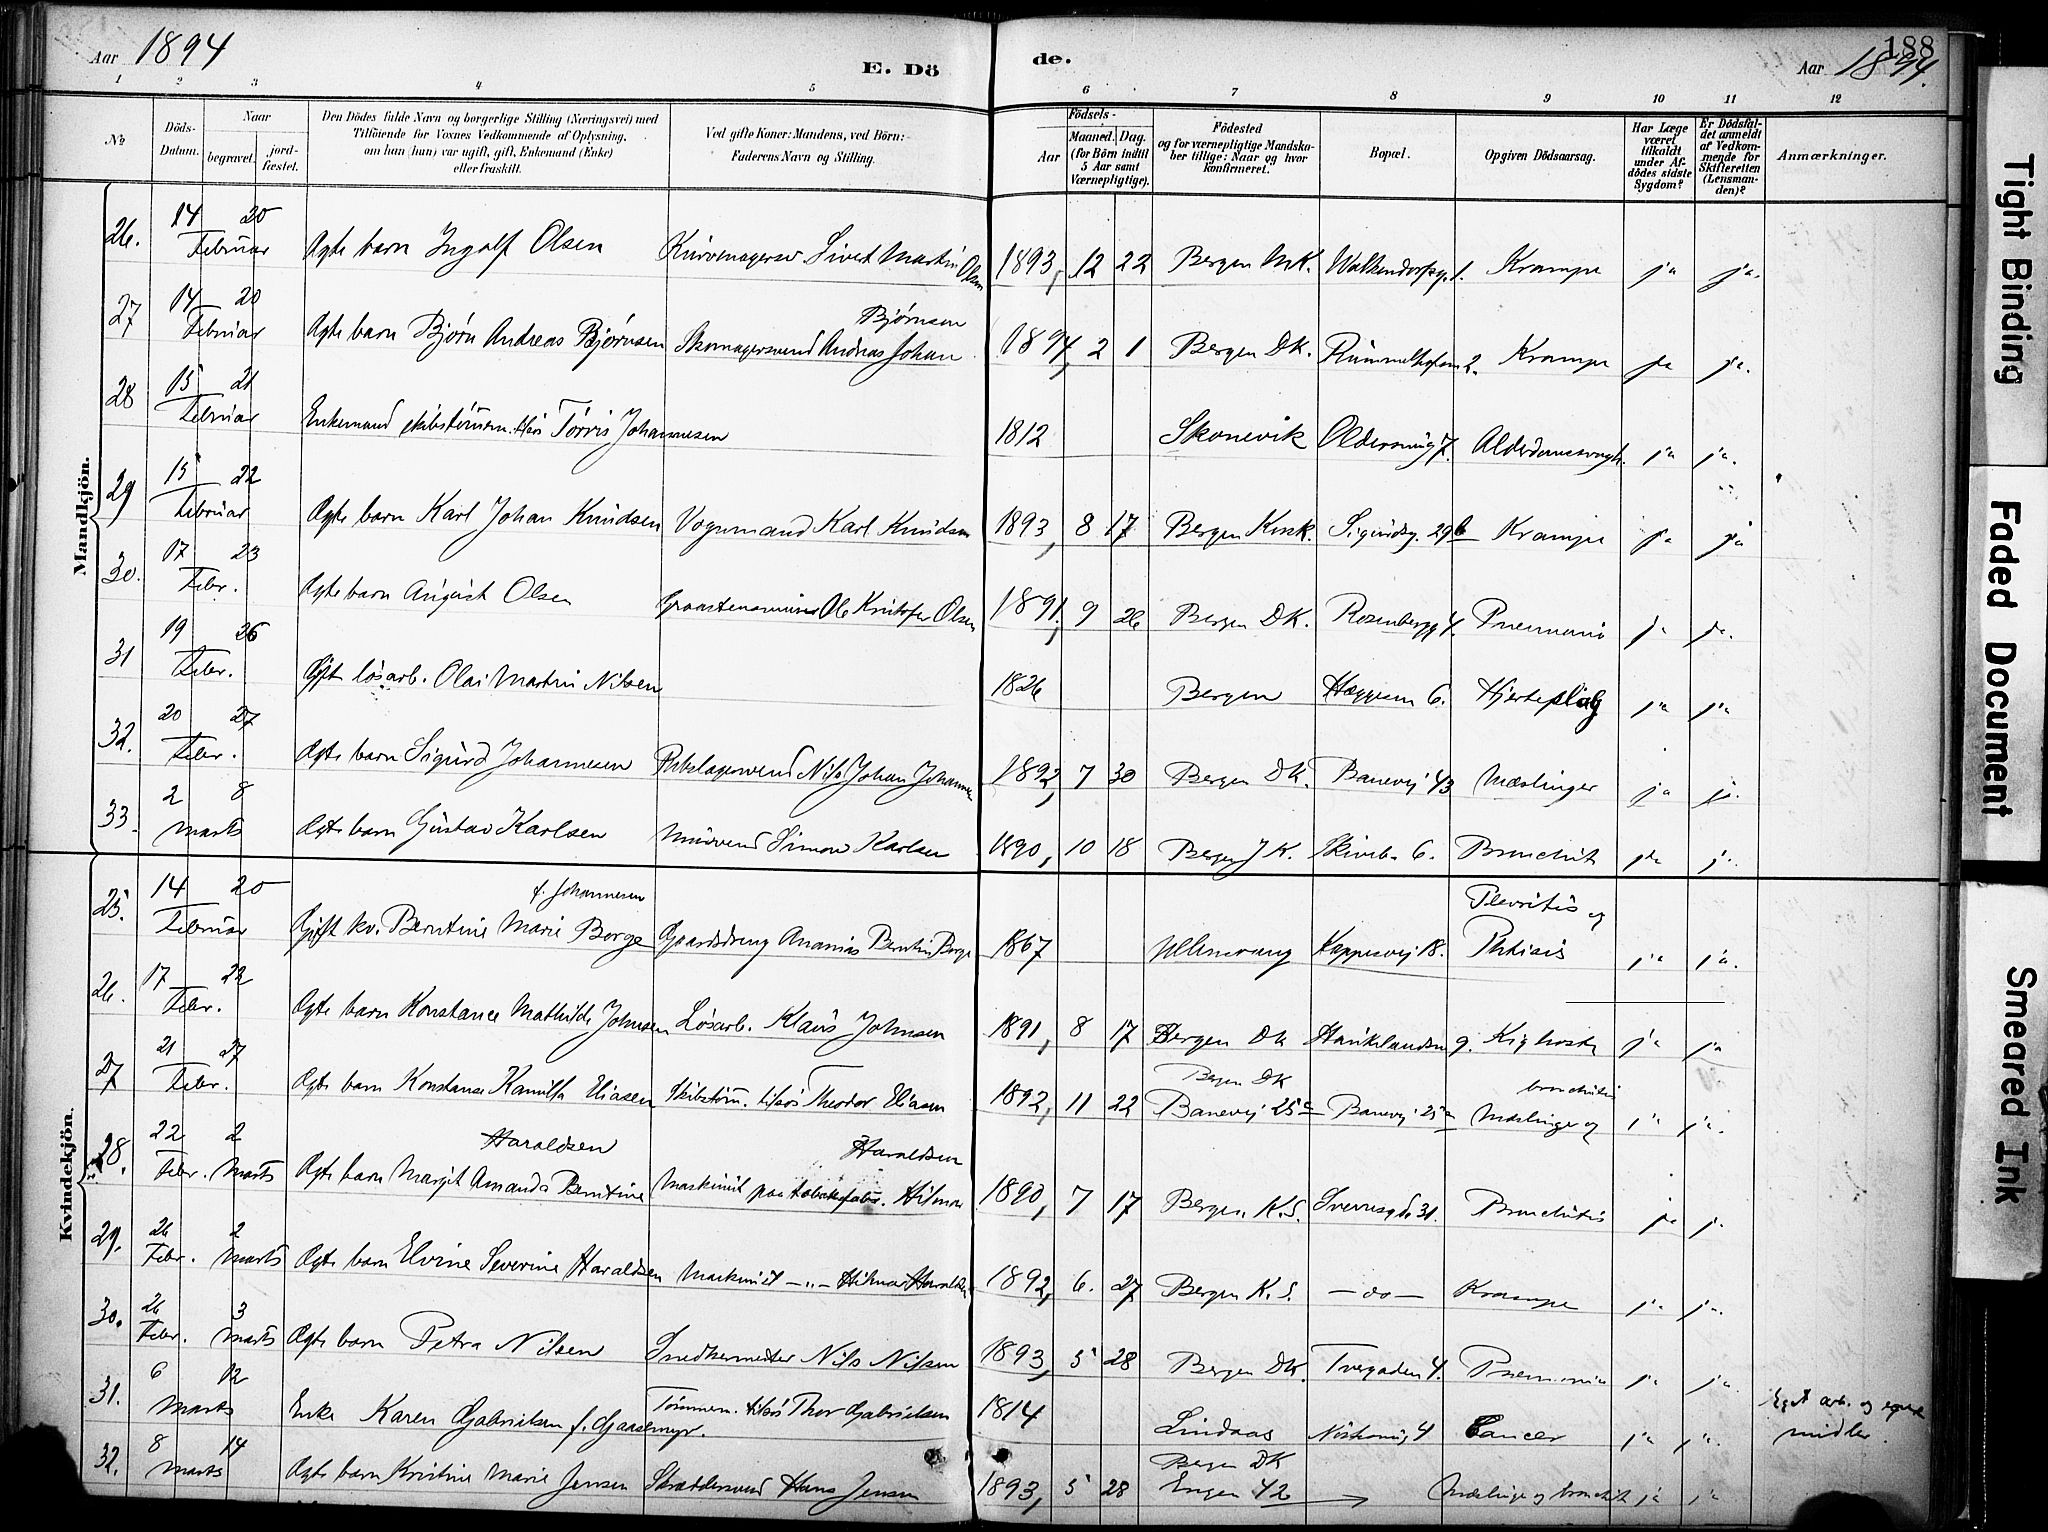 188
Aar 1894
E. Dö
de.
Aar 1894.
1 2 3 4 5 6 7 8 9 10 11 12
№
Döds-
Datum.
Naar
begravet.
jord-
fæstet.
Den Dödes fulde Navn og borgerlige Stilling (Næringsvei) med
Tilföiende for Voxnes Vedkommende af Oplysning,
om han (hun) var ugift, gift, Enkemand (Enke)
eller fraskilt.
Ved gifte Koner: Mandens, ved Börn:
Faderens Navn og Stilling.
Födsels-
Aar
Maaned. Dag.
(for Börn indtil
5 Aar samt
Værnepligtige).
Födested
og for værnepligtige Mandska-
ber tillige: Naar og hvor
konfirmeret.
Bopæl.
Opgiven Dödsaarsag.
Har Læge
været
tilkaldt
under Af-
dödes sidste
Sygdom?
Er Dödsfal-
det anmeldt
af Vedkom-
mende for
Skifteretten
(Lensman-
den)?
Anmærkninger.
Mandkjön.
26. 14 Februar 20 Ægte barn Ingolf Olsen Sivert Martin Olsen 1893, 12 22 Bergen Krampe ja ja.
27 14 Februar 20 Ægte barn Bjørn Andreas Bjørnsen Skomagersvend Andreas Johan Bjørnsen 1894, 2 1 Bergen DK. 2. Krampe ja ja.
28 15 Februar 21 Enkemand Johannesen 1812 Skonevik 7. ja ja.
29 15 Februar 22 Ægte barn Karl Johan Knudsen Vognmand Karl Knudsen 1893, 8 17 Bergen Sigurdsg. 29b Krampe ja ja
30. 17 Febr. 23 Ægte barn August Olsen Ole Kristofer Olsen 1891, 9 26 Bergen DK. Rosenbergg 4. ja ja.
31 19 Febr. 26 Gift løsarb. Olai Martin Nilsen 1826 Bergen 6. ja ja
32. 20 Febr. 27 Ægte barn Sigurd Johannesen Nils Johan 1892, 7 30 Bergen DK. Banevej 43 Mæslinger ja ja.
33. 2 marts 8 Ægte barn Gustav Karlsen Simon Karlsen 1890, 10 18 Bergen J K. 6. Bronchit ja ja.
Kvindekjön.
25. 14 Februar 20 Gift kv. Berntine Marie Borge f. Johannesen Gaardsdreng Ananias Berntin Borge 1867 Ullensvang 18. Plevritis og
Phtisis ja ja.
26. 17 Febr. 22 Ægte barn Konstance Mathilde Johnsen Løsarb. Klaus Johnsen 1891, 8 17 Bergen DK 9. Kighoste ja ja
27 21 Febr. 27 Ægte barn Konstanse Kamilla Eliasen Theodor Eliasen 1892, 11 22 Bergen DK
Banevej 25a Banevej 25a Mæslinger og bronchitis ja ja.
28. 22 Febr. 2 Marts Ægte barn Margit Amanda Berntine Haraldsen Maskinist paa Hilmar Haraldsen 1890, 7 17 Bergen K.S. Sverresgd. 31. Bronchitis ja ja
29. 26 Febr. 2 Marts Ægte barn Elvine Severine Haraldsen Maskinist -"- Hilmar Haraldsen 1892, 6. 27 Bergen K.S. - do - Krampe ja ja.
30. 26 Febr. 3 Marts Ægte barn Petra Nilsen Snedkermester Nils Nilsen 1893, 5 28 Bergen DK. Tvergaden 4. Pneumonia ja ja.
31. 6 Marts 12 Enke Karen Gabrielsen f. Gaasemyr. Thor Gabrielsen 1814 Lindaas 4 Cancer ja ja. Eget arb. og egne
midler.
32. 8 Marts 14 Ægte barn Kristine Marie Jensen Skræddersvend Hans Jensen 1893, 5 28 Bergen DK
Engen 42 Mæslinge og bronchit ja ja
Tight Binding
Faded Document
Smeared Ink